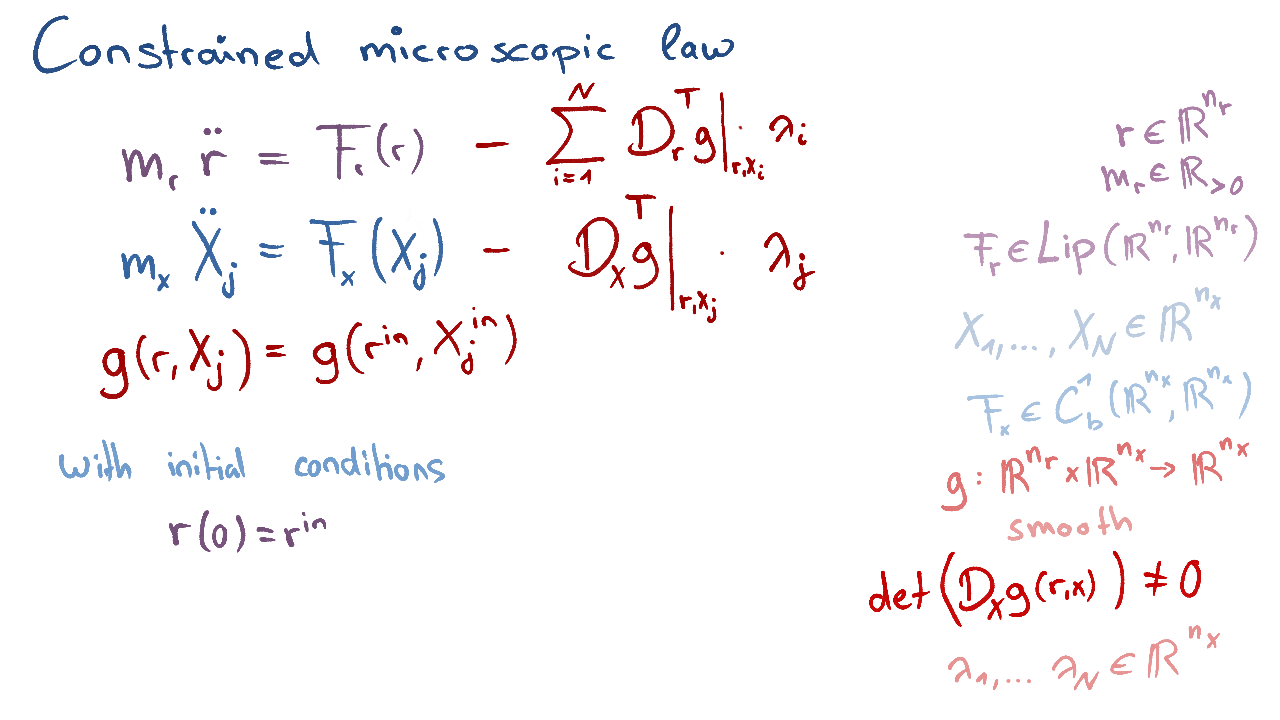 Constrained microscopic law
m_r r̈ = F_r(r) − ∑_{i=1}^{N} D_r^T g|_{r,X_i} · λ_i
m_x Ẍ_j = F_x(X_j) − D_x^T g|_{r,X_j} · λ_j
g(r, X_j) = g(r^{in}, X_j^{in})
with initial conditions
r(0) = r^{in}
r ∈ ℝ^{n_r}
m_r ∈ ℝ_{>0}
F_r ∈ Lip(ℝ^{n_r}, ℝ^{n_r})
X_1, ..., X_N ∈ ℝ^{n_x}
F_x ∈ C_b^1(ℝ^{n_x}, ℝ^{n_x})
g : ℝ^{n_r} × ℝ^{n_x} → ℝ^{n_x}
smooth
det(D_x g(r,x)) ≠ 0
λ_1, ... λ_N ∈ ℝ^{n_x}